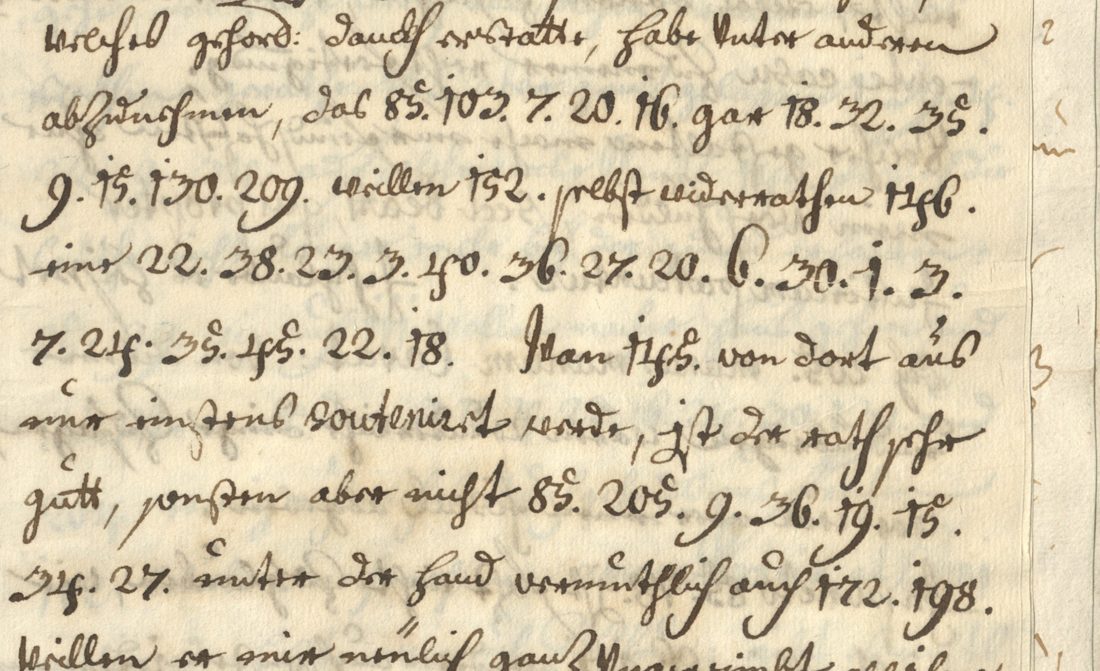 welches gehors: danckh erstatte, habe Unter anderen
abzunehmen, das 85. 103. 7. 20. 16. gar 18. 32. 35.
9. 15. 130. 209. weillen 152. selbst widerrathen 146.
eine 22. 38. 23. 3. 40. 36. 27. 20. 6. 30. 1. 3.
7. 24. 35. 45. 22. 18. Wan 145. von dort aus
nur einstens souteniret werde, ist der rath sehr
gutt, sonsten aber nicht 85. 205. 9. 36. 19. 15.
34. 27. unter der hand vermuthlich auch 172. 198.
Weillen er mir neulich ganz